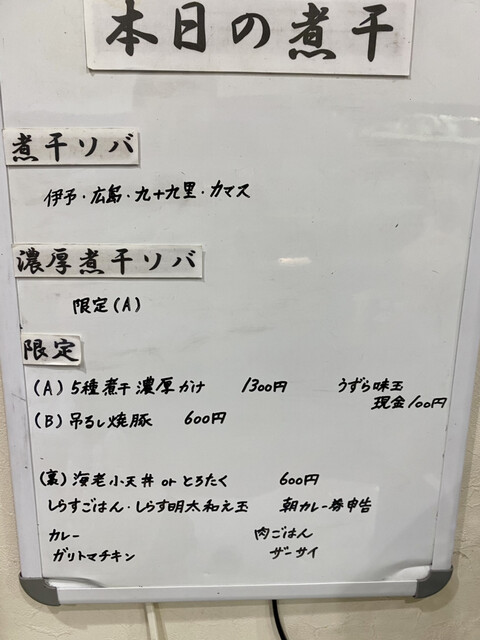 本日の煮干
煮干ソバ
伊予・広島・九十九里・カマス
濃厚煮干ソバ
限定(A)
限定
(A) 5種煮干濃厚かけ 1300円 うずら味玉
現金100円
(B) 吊るし焼豚 600円
(裏) 海老小天丼 or とろたく 600円
しらすごはん・しらす明太和え玉 朝カレー券申告
カレー 肉ごはん
ガリトマチキン ザーサイ